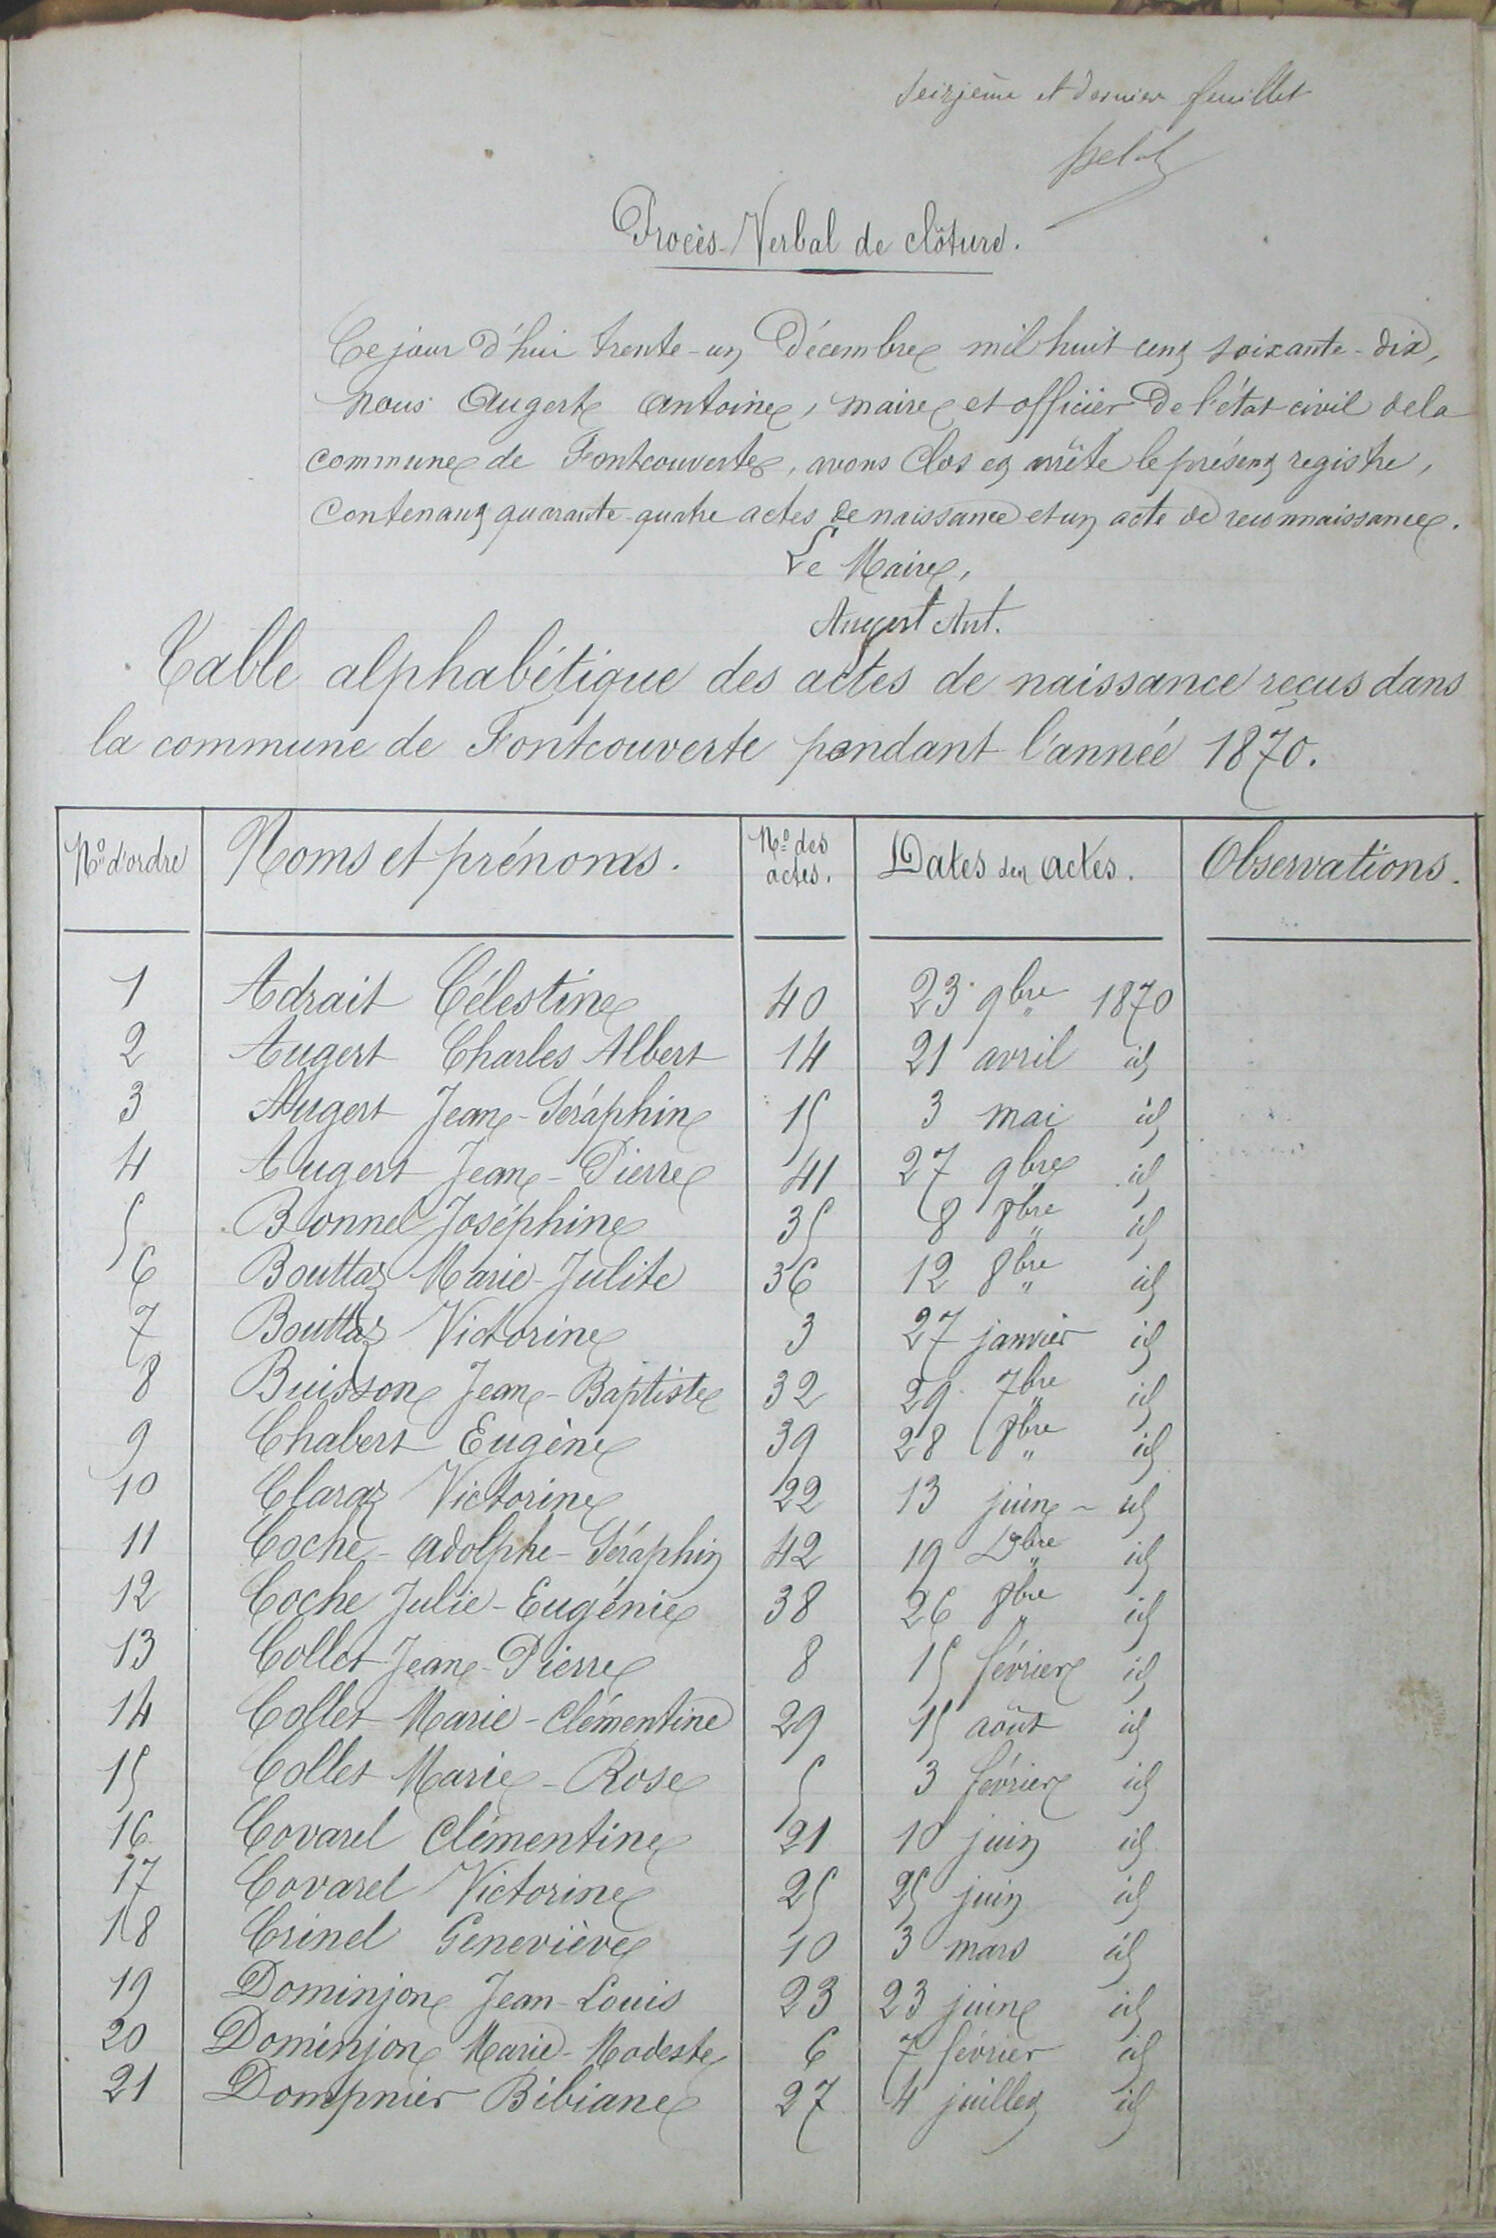 Seizième et dernier feuillet
Procès-Verbal de clôture.
Ce jour d'hui trente-un Décembre mil huit cent soixante-dix,
nous Augert Antoine, maire et officier de l'état civil de la
commune de Fontcouverte, avons clos et arrêté le présent registre,
contenant quarante-quatre actes de naissance et un acte de reconnaissance.
Le Maire,
Augert Ant.
Table alphabétique des actes de naissance reçus dans
la commune de Fontcouverte pendant l'année 1870.
Nos d'ordre Noms et prénoms. Nos des actes. Dates des actes. Observations.
1 Adrait Célestine 40 23 9bre 1870
2 Augert Charles Albert 14 21 avril id
3 Augert Jean-Séraphin 15 3 mai id
4 Augert Jean-Pierre 41 27 9bre id
5 Bonnel Joséphine 35 8 8bre id
6 Bouttaz Marie-Julite 36 12 8bre id
7 Bouttaz Victorine 3 27 janvier id
8 Buisson Jean-Baptiste 32 29 7bre id
9 Chabert Eugène 39 28 8bre id
10 Claraz Victorine 22 13 juin - id
11 Coche-Adolphe-Séraphin 42 19 Dbre id
12 Coche Julie-Eugénie 38 26 8bre id
13 Collet Jean-Pierre 8 15 février id
14 Collet Marie-Clémentine 29 15 août id
15 Collet Marie-Rose 5 3 février id
16 Covarel Clémentine 21 10 juin id
17 Covarel Victorine 25 25 juin id
18 Crinel Geneviève 10 3 mars id
19 Dominjon Jean-Louis 23 23 juin id
20 Dominjon Marie-Modeste 6 7 février id
21 Dompnier Bibiane 27 4 juillet id